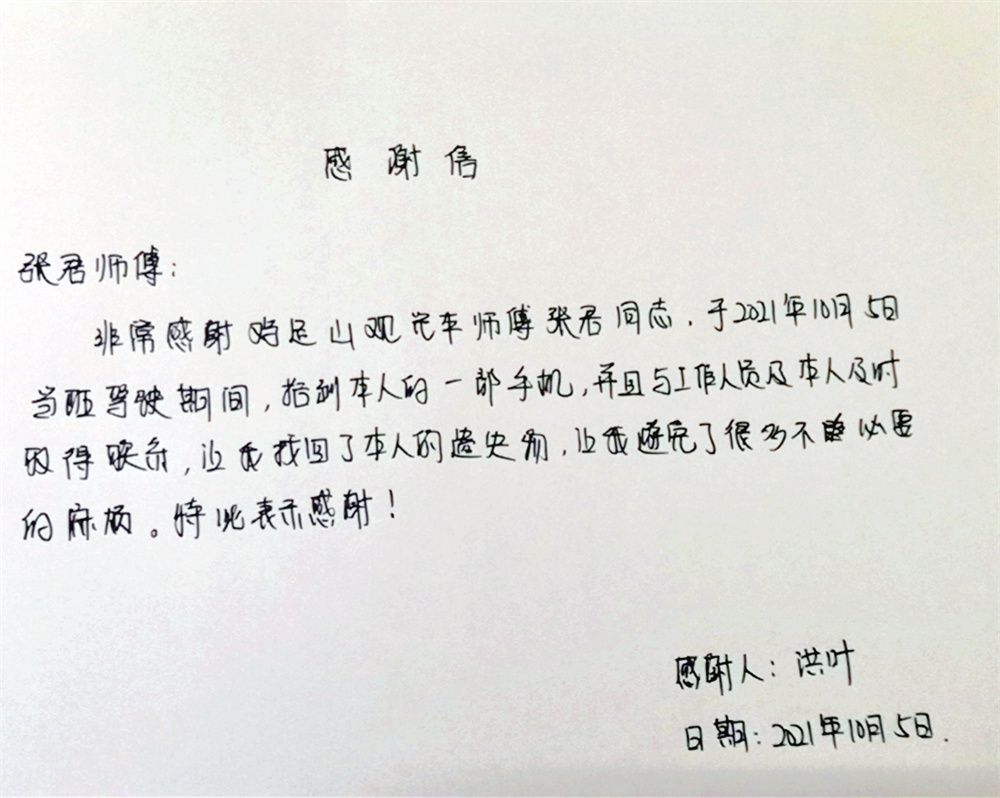 感谢信
张君师傅:
非常感谢鸡足山观光车师傅张君同志,于2021年10月5日
当班驾驶期间,拾到本人的一部手机,并且与工作人员及本人及时
取得联系,让我找回了本人的遗失物,让我避免了很多不必要
的麻烦。特此表示感谢!
感谢人:洪叶
日期:2021年10月5日.